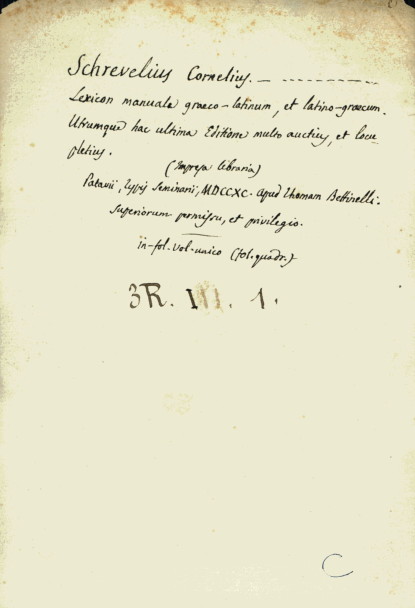 Schrevelius Cornelius. — - - - - - - - - - -
Lexicon manuale graeco-latinum, et latino-graecum.
Utrumque hac ultima Editione multo auctius, et locu
pletius.
(Impresa libraria)
Patavii, Typis Seminarii, MDCCXC. apud Thomam Bettinelli.
Superiorum permissu, et privilegio.
in-fol. vol. unico (fol. quadr.)
3R. III. 1.
C